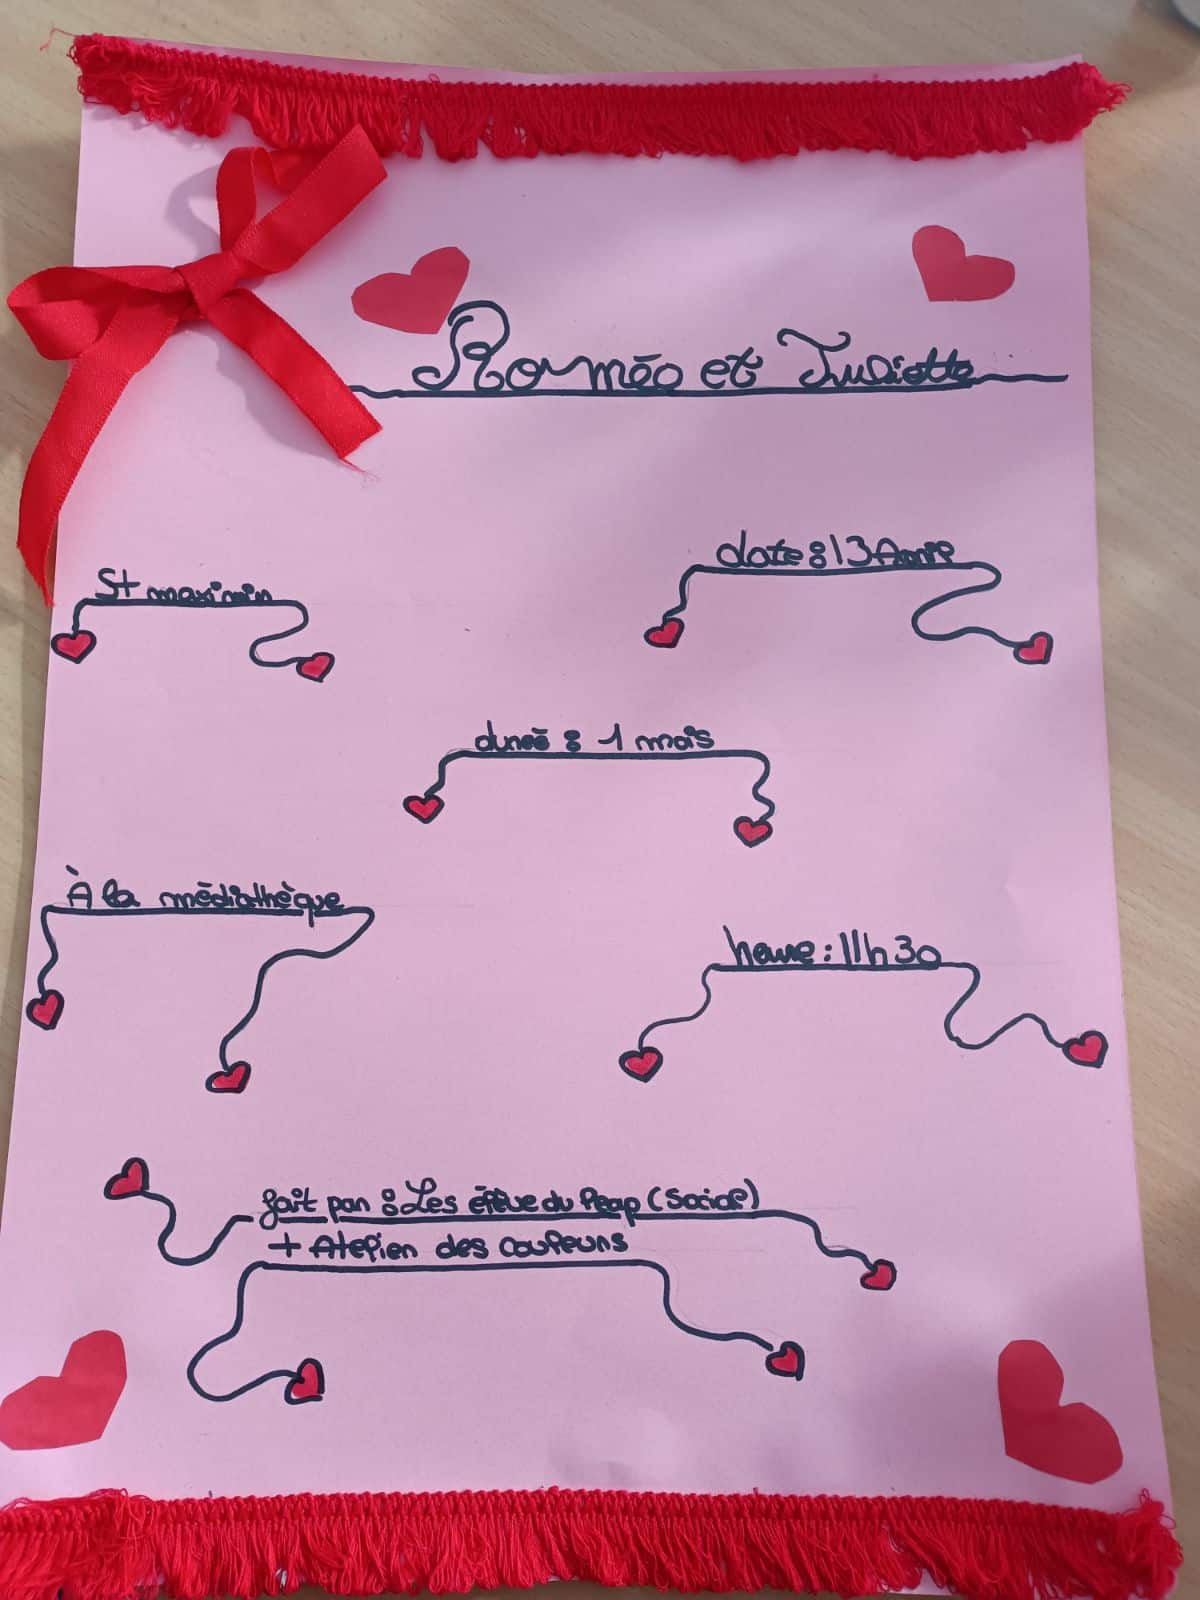 Roméo et Juliette
St maximin
date : 13 Avril
duréé : 1 mois
À la médiathèque
heure : 11h30
fait par : Les élève du Peap (Social)
+ Atelier des couleurs